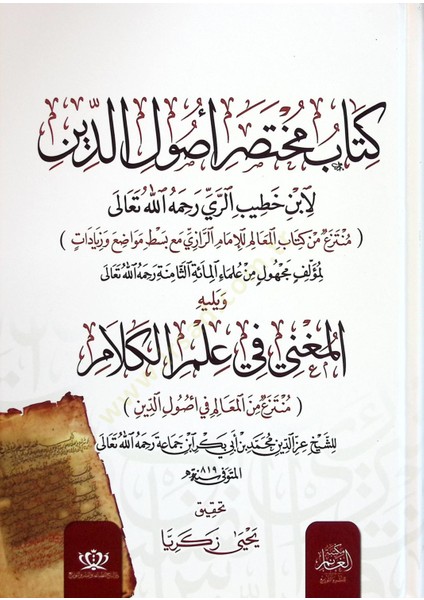 كتاب مختصر أصول الدين
لابن خطيب الري رحمه الله تعالى
( منتزع من كتاب المعالم للإمام الرازي مع بسط مواضع وزيادات )
لمؤلف مجهول من علماء المائة الثامنة رحمه الله تعالى
ويليه
المغني في علم الكلام
( منتزع من المعالم في أصول الدين )
للشيخ عز الدين محمد بن أبي بكر ابن جماعة رحمه الله تعالى
المتوفى سنة ٨١٩ هـ
تحقيق
يحيى زكريا
مكتبة
الغانم